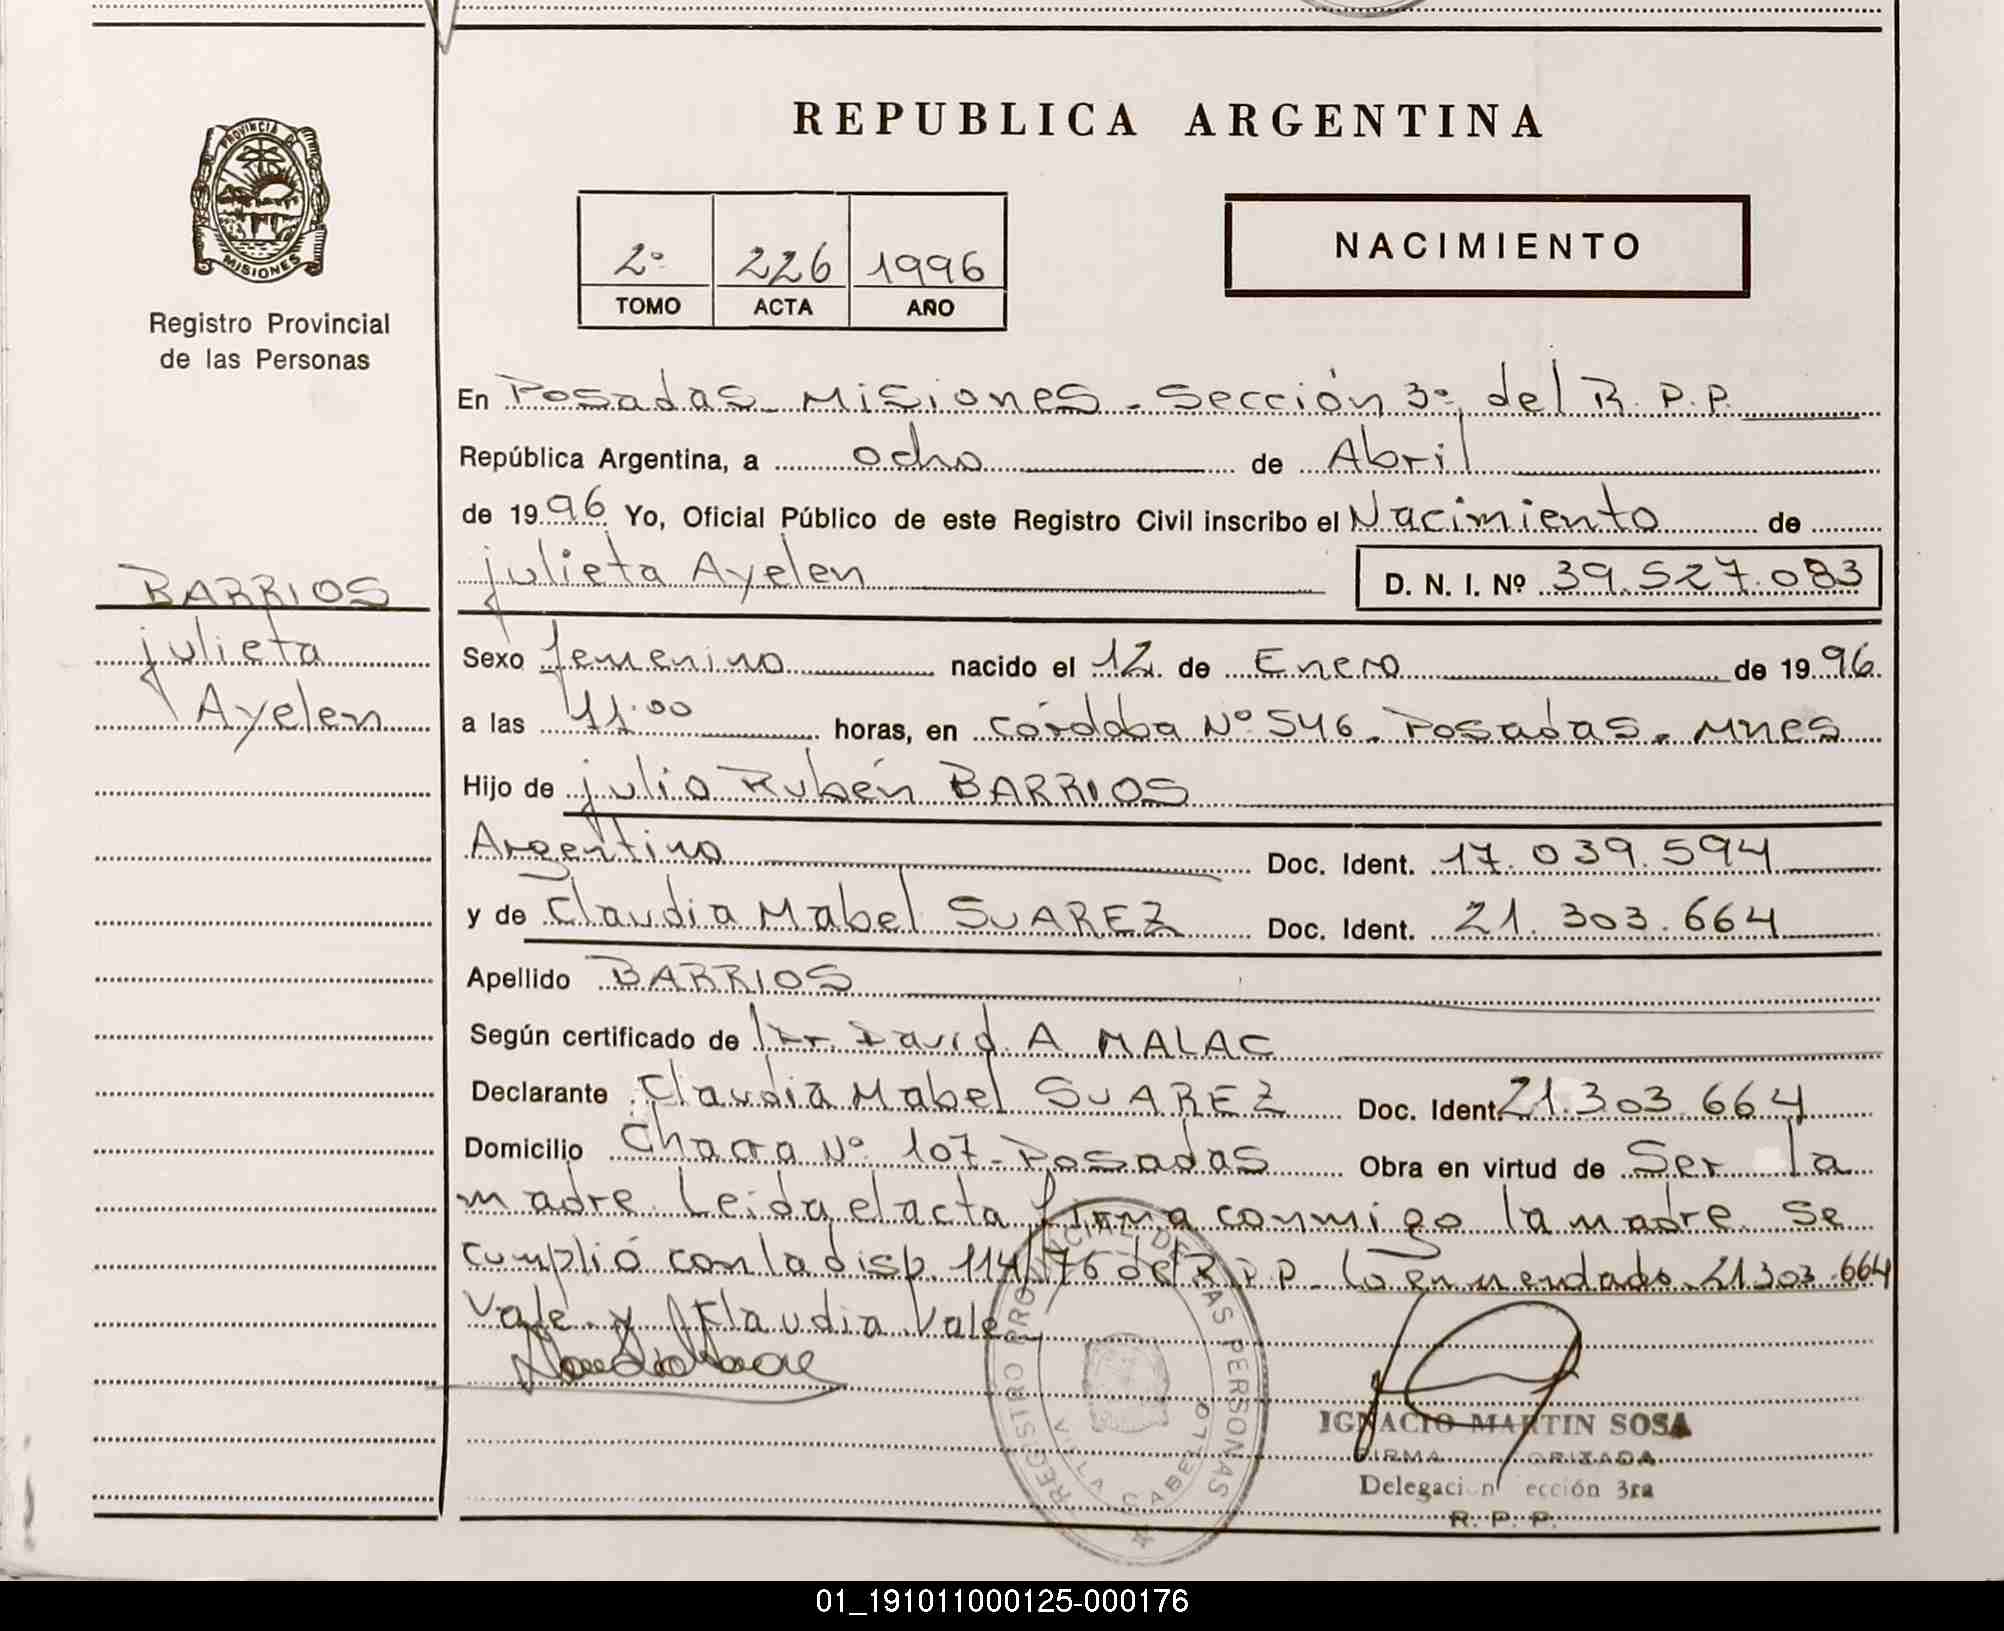 REPUBLICA ARGENTINA
PROVINCIA DE
MISIONES
Registro Provincial
de las Personas
2º 226 1996
TOMO ACTA AÑO
NACIMIENTO
En Posadas Misiones - Sección 3º del R. P. P.
República Argentina, a ocho de Abril
de 1996 Yo, Oficial Público de este Registro Civil inscribo el Nacimiento de
julieta Ayelen D. N. I. Nº 39.527.083
BARRIOS
julieta
Ayelen
Sexo femenino nacido el 12 de Enero de 1996
a las 11:00 horas, en Córdoba Nº 546. Posadas. Mnes
Hijo de julio Rubén BARRIOS
Argentino Doc. Ident. 17.039.594
y de Claudia Mabel SUAREZ Doc. Ident. 21.303.664
Apellido BARRIOS
Según certificado de Dr. David A MALAC
Declarante Claudia Mabel SUAREZ Doc. Ident. 21.303.664
Domicilio Chacra Nº 107 - Posadas Obra en virtud de Ser la
madre. Leida el acta firma conmigo la madre. Se
cumplió con la disp. 114/76 del R.P.P. Lo enmendado 21303.664
Vale. y Claudia Vale
REGISTRO PROVINCIAL DE LAS PERSONAS
VILLA CABELLO
IGNACIO MARTIN SOSA
FIRMA ORIZADA
Delegacion ección 3ra
R. P. P.
01_191011000125-000176